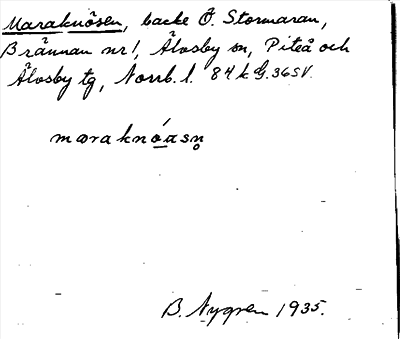 Maraknösen, backe Ö. Stormaran,
Brännan nr 1, Älvsby sn, Piteå och
Älvsby tg, Norrb. l. 84 k G. 36 SV.
maraknóasn̥
B. Nygren 1935.